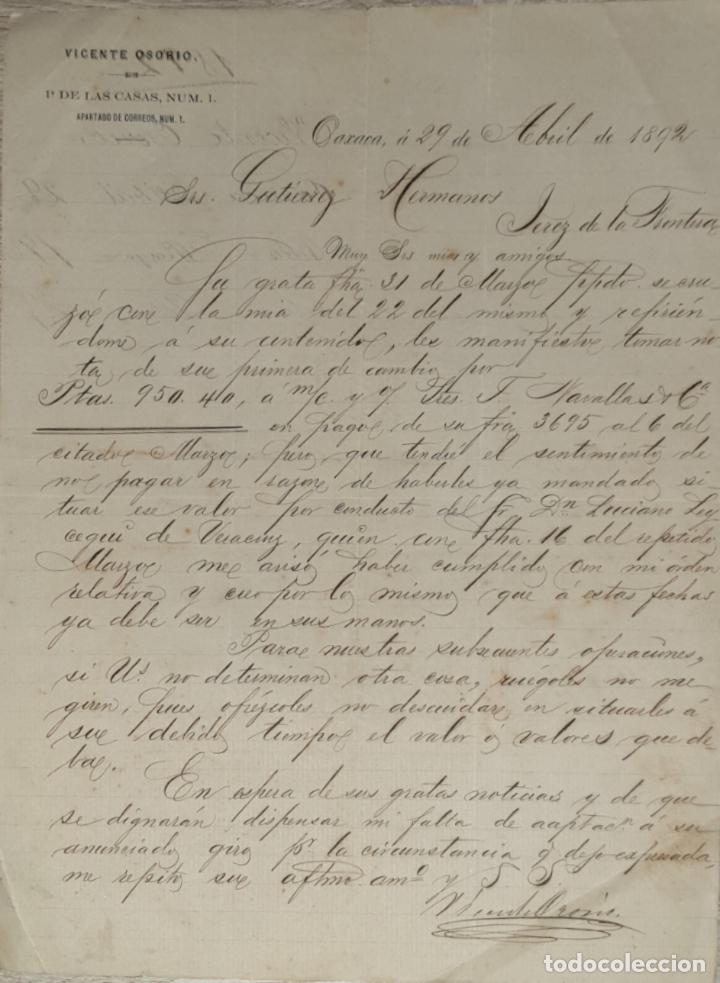 VICENTE OSORIO.
P. DE LAS CASAS, NUM. 1.
APARTADO DE CORREOS, NUM. 1.
Oaxaca, á 29 de Abril de 1892
Srs. Gutierrez Hermanos
Jerez de la Frontera
Muy Srs mios y amigos
Su grata fha 31 de Marzo ppdo. se cru-
zó con la mia del 22 del mismo y refirién-
dome á su contenido, les manifiesto tomar no-
ta de su primera de cambio por
Ptas. 950.40, á m/c. y o/. Sres. F. Navallas & Cª
en pago de su fra. 3695 al 6 del
citado Marzo; pero que tendré el sentimiento de
no pagar en razon de haberles ya mandado si-
tuar ese valor por conducto del Sr. Dn. Luciano
de Veracruz, quien con fha. 16 del repetido
Marzo me avisó haber cumplido con mi órden
relativa y creo por lo mismo que á estas fechas
ya debe ser en sus manos.
Para nuestras subsecuentes operaciones,
si Us. no determinan otra cosa, ruégoles no me
giren, pues ofrézcoles no descuidar en situarles á
su debido tiempo el valor ó valores que de-
ba.
En espera de sus gratas noticias y de que
se dignarán dispensar mi falta de aceptacn. á su
anunciado giro pr. la circunstancia q. dejo expresada,
me repito su aftmo. amº y S. S.
Vicente Osorio.
todocoleccion.net